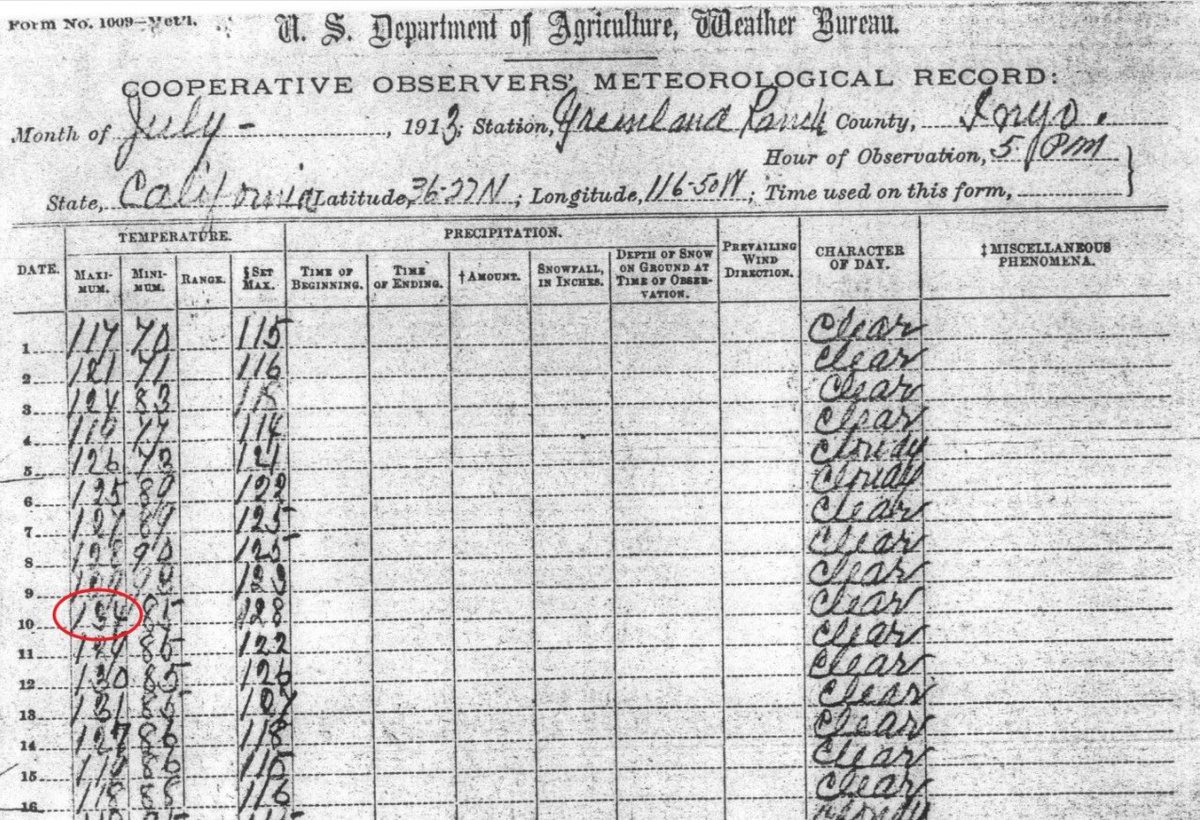 Form No. 1009—Met'l.
U. S. Department of Agriculture, Weather Bureau.
COOPERATIVE OBSERVERS' METEOROLOGICAL RECORD:
Month of July, 1913; Station, Greenland Ranch County, Inyo.
Hour of Observation, 5 PM
State, California Latitude, 36-27 N; Longitude, 116-50 W; Time used on this form,
TEMPERATURE. PRECIPITATION.
DATE. MAXI-MUM. MINI-MUM. RANGE. §SET MAX. TIME OF BEGINNING. TIME OF ENDING. †AMOUNT. SNOWFALL, IN INCHES. DEPTH OF SNOW ON GROUND AT TIME OF OBSER-VATION. PREVAILING WIND DIRECTION. CHARACTER OF DAY. ‡MISCELLANEOUS PHENOMENA.
1 117 70 115 Clear
2 121 71 116 Clear
3 124 83 115 Clear
4 119 77 114 Clear
5 126 73 121 Cloudy
6 125 89 122 Cloudy
7 127 89 125 Clear
8 128 90 125 Clear
9 123 Clear
10 134 85 128 Clear
11 129 86 122 Clear
12 130 85 126 Clear
13 131 85 127 Clear
14 127 118 Clear
15 115 Clear
16 118 116 Clear